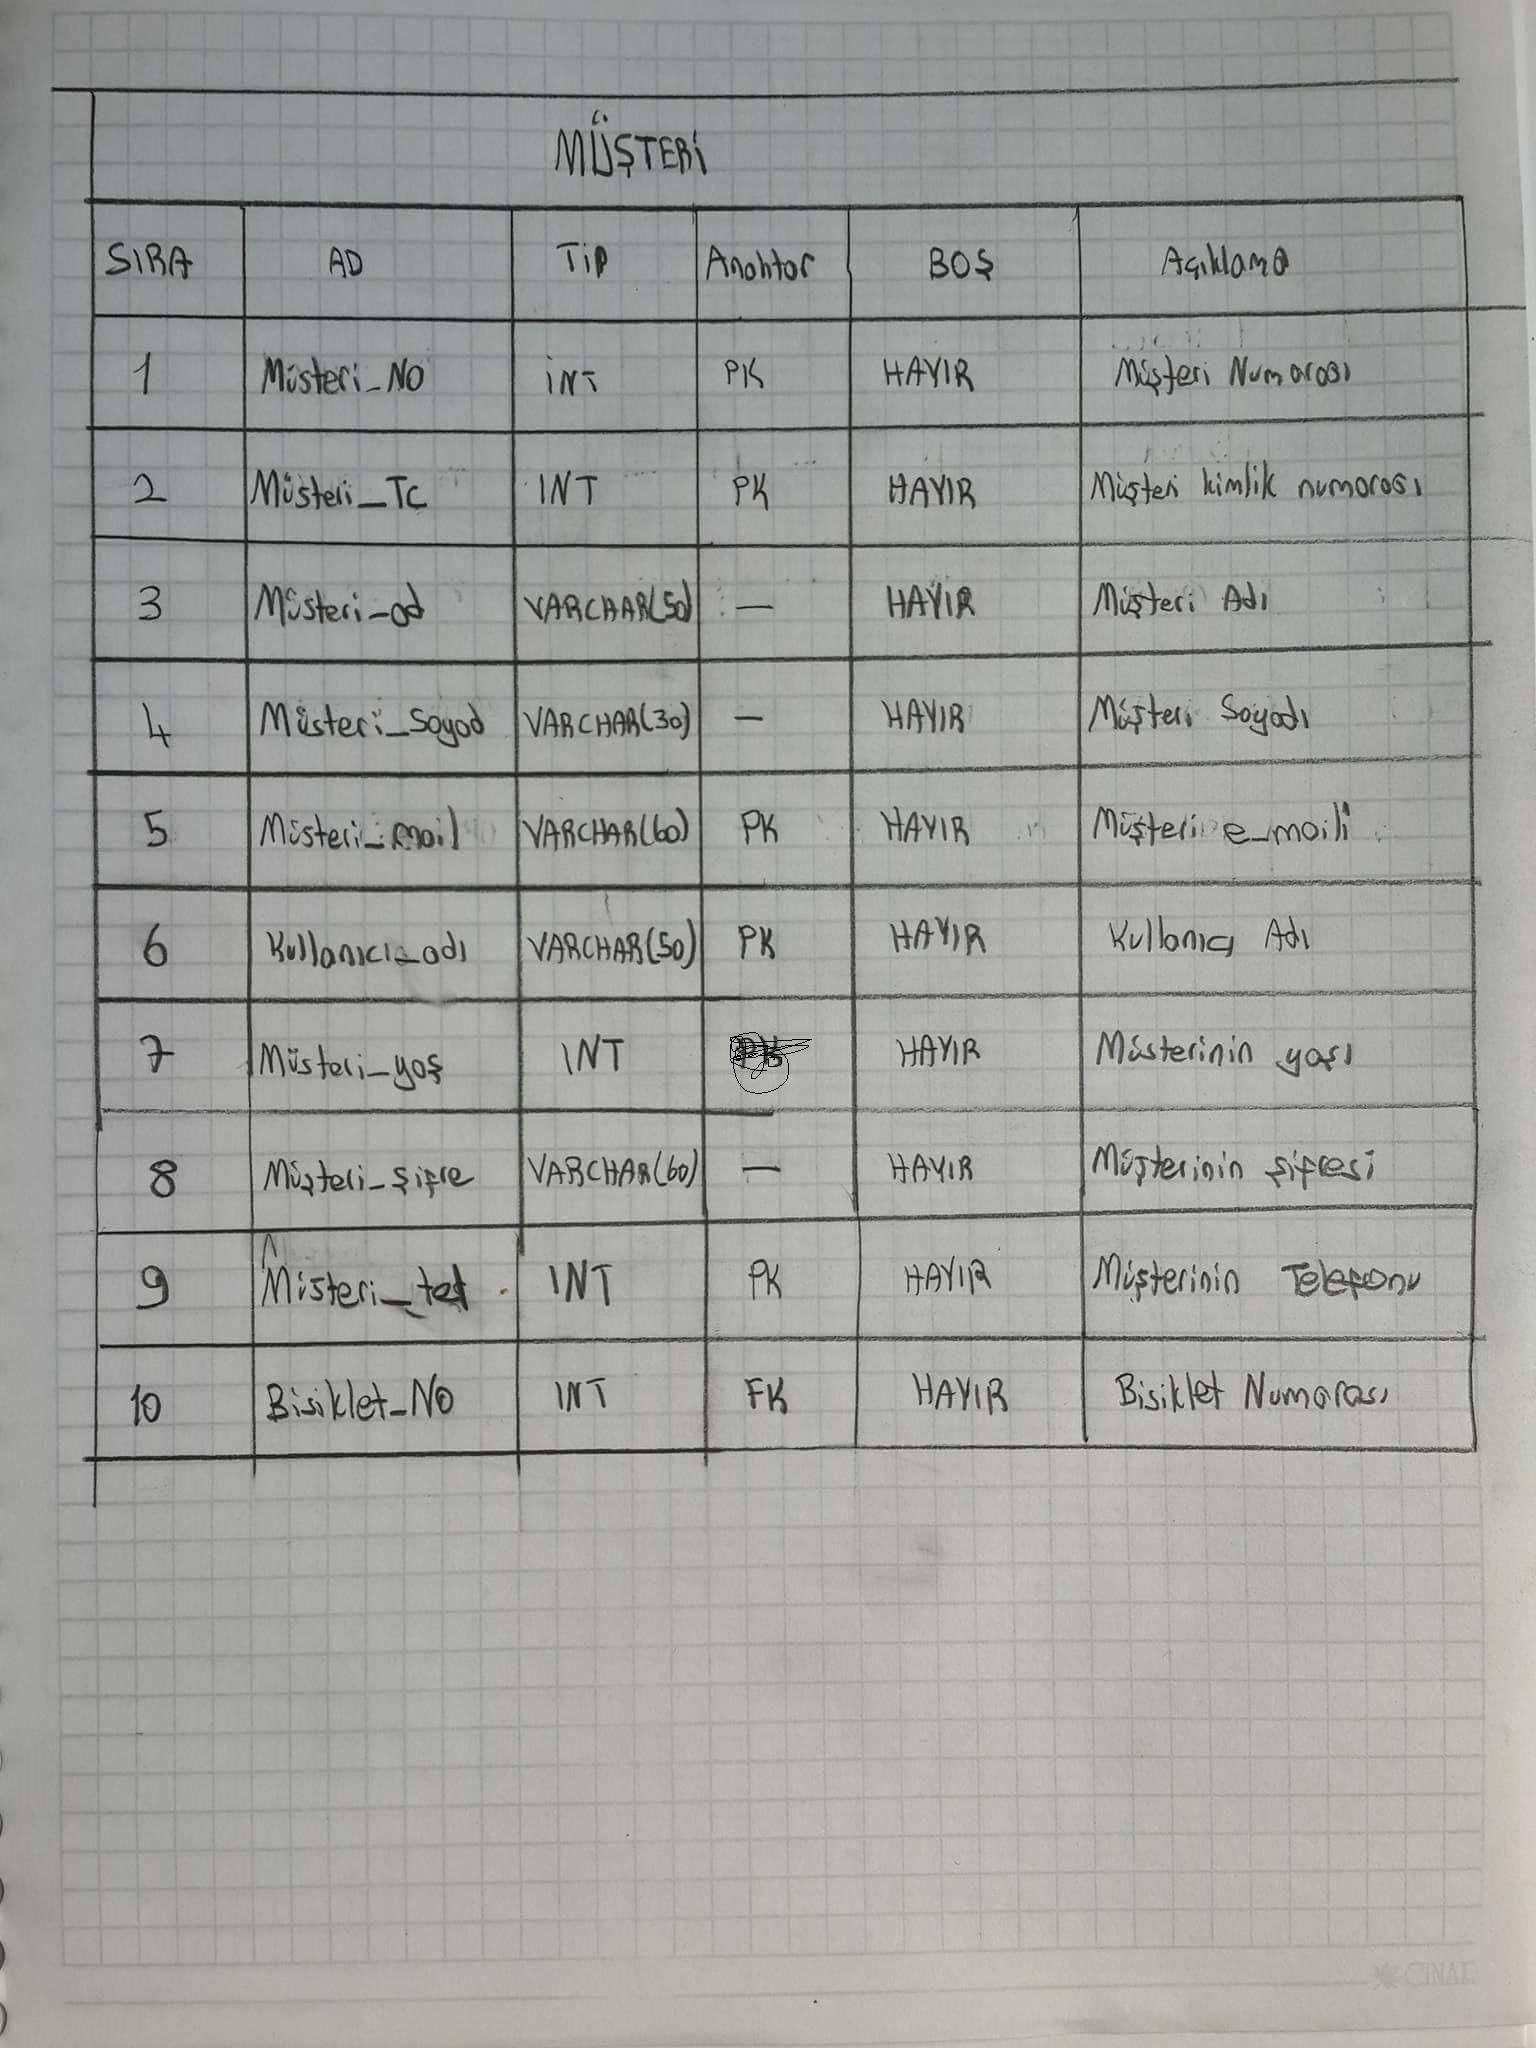 MÜŞTERİ
SIRA AD TİP Anahtar BOŞ Açıklama
1 Müsteri_NO İNT PK HAYIR Müşteri Numarası
2 Müsteri_Tc INT PK HAYIR Müşteri kimlik numarası
3 Müsteri_ad VARCHAR(50) — HAYIR Müşteri Adı
4 Müsteri_Soyad VARCHAR(30) — HAYIR Müşteri Soyadı
5 Müsteri_mail VARCHAR(60) PK HAYIR Müşteri e_maili
6 Kullanıcı_adı VARCHAR(50) PK HAYIR Kullanıcı Adı
7 Müsteri_yaş INT HAYIR Müsterinin yaşı
8 Müşteri_şifre VARCHAR(60) — HAYIR Müşterinin şifresi
9 Müsteri_tel INT PK HAYIR Müşterinin Telefonu
10 Bisiklet_No INT FK HAYIR Bisiklet Numarası
ÇINAR